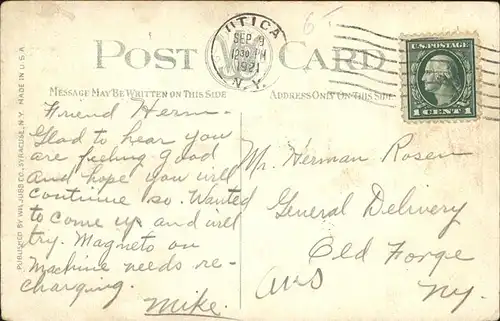 UTICA
SEP 9
12 30 PM
1921
N.Y.
65
U.S. POSTAGE
1 CENT 1
POST CARD
MESSAGE MAY BE WRITTEN ON THIS SIDE
ADDRESS ONLY ON THIS SIDE
PUBLISHED BY WM. JUBB CO., SYRACUSE, N.Y. MADE IN U.S.A.
Friend Herm-
Glad to hear you
are feeling good
and hope you will
continue so. Wanted
to come up and will
try. Magneto on
Machine needs re-
charging.
Mike.
Mr. Herman Rosen
General Delivery
Old Forge
N.y.